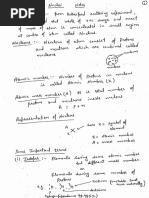 Nuclei Notes
①
from Rutherford scattering experiment,
that most of +ve charge and most
of mass of atom is concentrated in small region
at centre of atom called Nucleus
Nucleons :- Nucleus of atom consist of Protons
and neutrons which are combined called
nucleons.
Atomic number :- Number of Protons in nucleus
is called Atomic Number (Z)
Atomic mass number (A) :- It is total number of
Protons and neutrons inside nucleus
A = P + N
Representation of Nucleus
A
X
Z
X = symbol of
element
A = Atomic mass
Z = Atomic
number
Some Important terms
(1) Isotopes :- Elements having same atomic number
but different atomic mass
or
Elements having same no. of
Protons
e.g.
Hydrogen